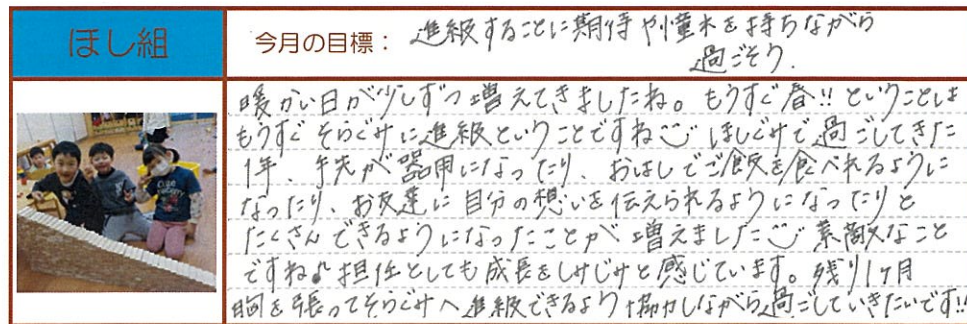 ほし組
今月の目標：進級することに期待や憧れを持ちながら
過ごそう.
暖かい日が少しずつ増えてきましたね。もうすぐ春!! ということは
もうすぐそらぐみに進級ということですね ほしぐみで過ごしてきた
1年、手先が器用になったり、おはしでご飯を食べれるように
なったり、お友達に自分の想いを伝えられるようになったりと
たくさんできるようになったことが増えました 素敵なこと
ですね♪ 担任としても成長をしみじみと感じています。残り1ヶ月
胸を張ってそらぐみへ進級できるよう協力しながら過ごしていきたいです!!